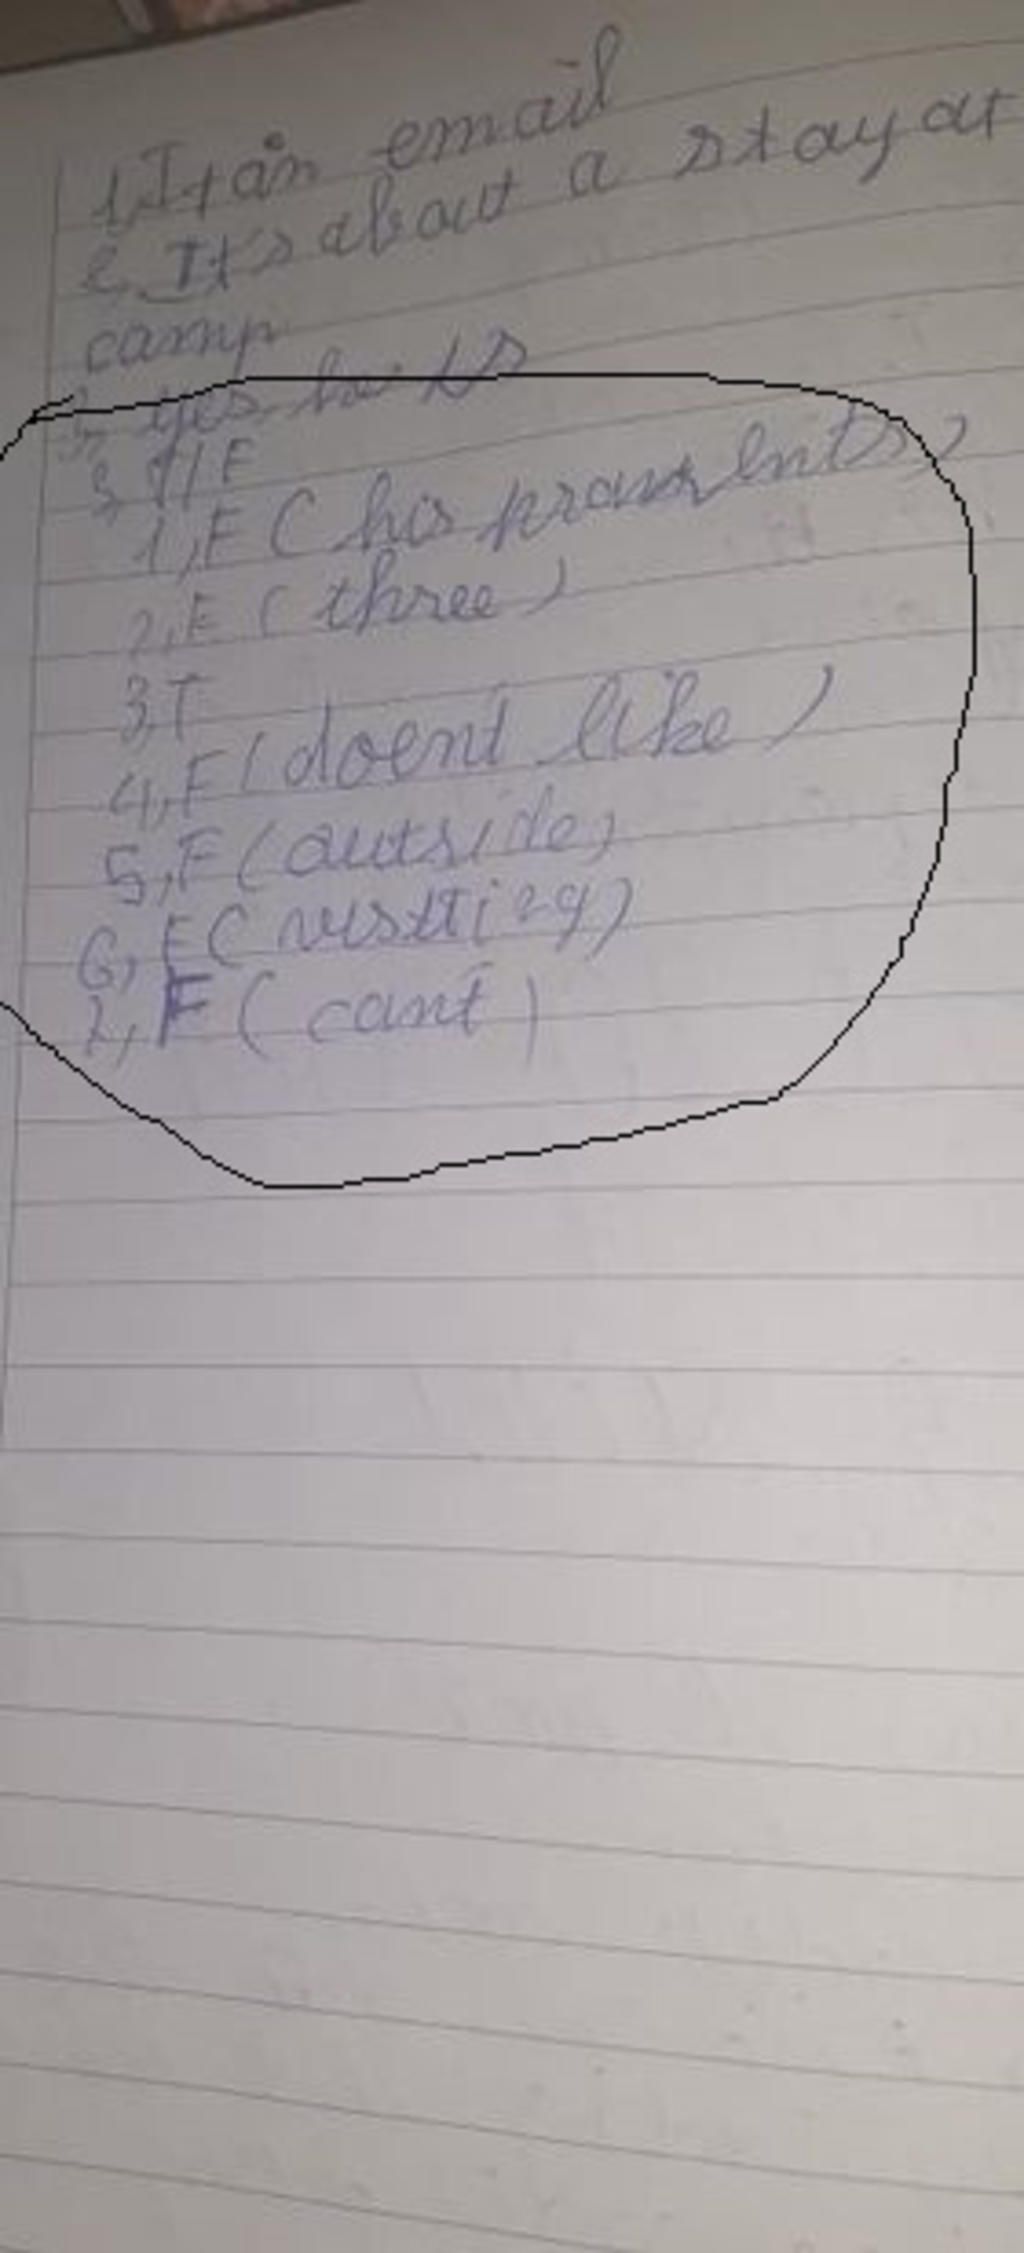 1, It an email
2, It's about a stay at
camp
3, yes he is
3, T/F
1, F ( his praments)
2, F ( three )
3, T
4, F ( doent like )
5, F ( outside)
6, F (
7, F ( cant )